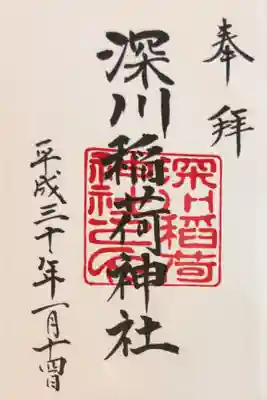 奉拝
深川稲荷神社
平成三十年一月十四日
深川稲荷
神社之印